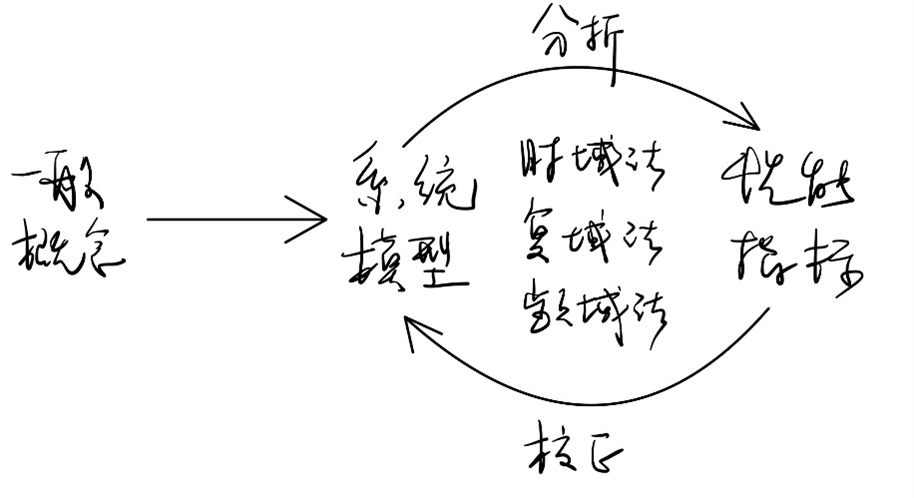 分析
一般
概念
系统
模型
时域法
复域法
频域法
性能
指标
校正